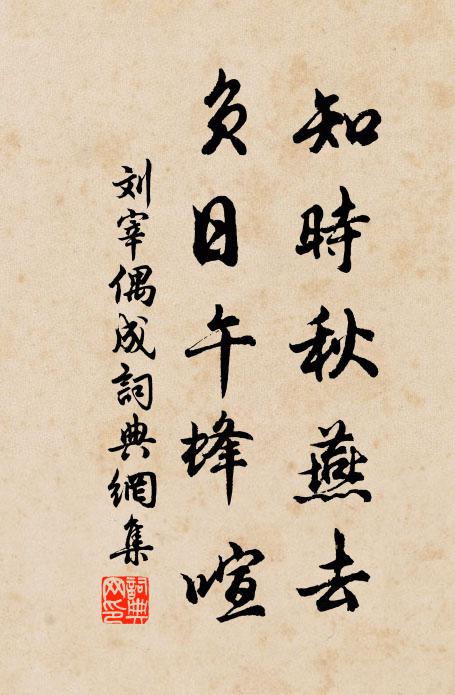 知時秋燕去
负日午蜂喧
刘宰偶成詞典網集
詞典网印